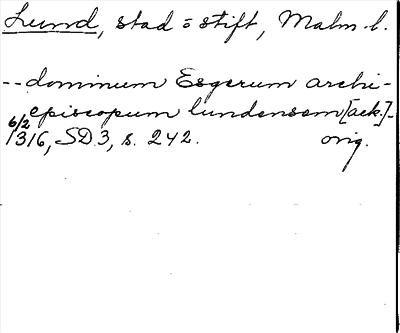 Lund, stad o stift, Malm. l.
-- dominum Esgerum archi-
episcopum lundensem [ack.] -
6/2
1316, SD3, s. 242. orig.